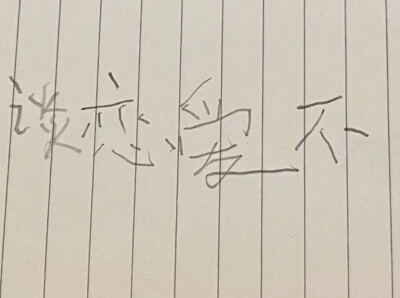 谈恋爱不